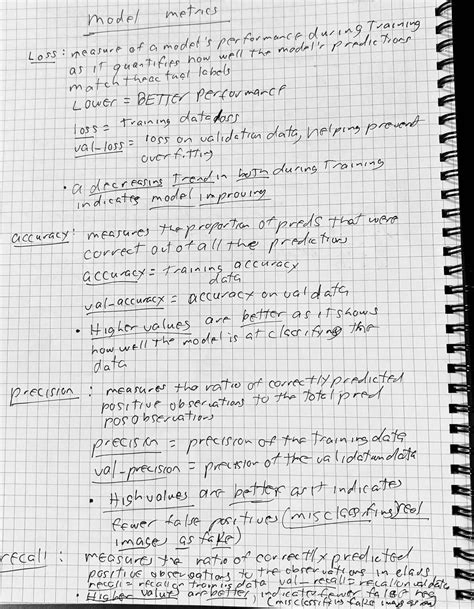 model metrics
Loss: measure of a model's performance during Training
as it quantifies how well the model's predictions
match the actual labels
Lower = BETTER performance
loss = Training data loss
val-loss = loss on validation data, helping prevent
overfitting
• a decreasing Trend in both during Training
indicates model improving
accuracy: measures the proportion of preds that were
correct out of all the predictions
accuracy = training accuracy
data
val-accuracy = accuracy on val data
• Higher values are better as it shows
how well the model is at classifying the
data
precision: measures the ratio of correctly predicted
positive observations to the total pred
pos observations
precision = precision of the training data
val-precision = precision of the validation data
• High values are better as it indicates
fewer false positives (misclassifying real
images as fake)
recall: measures the ratio of correctly predicted
positive observations to the observations in class
recall = recall on training data val-recall = recall on val data
• Higher values are better, indicates fewer false neg
(misclassifying fake images as real)